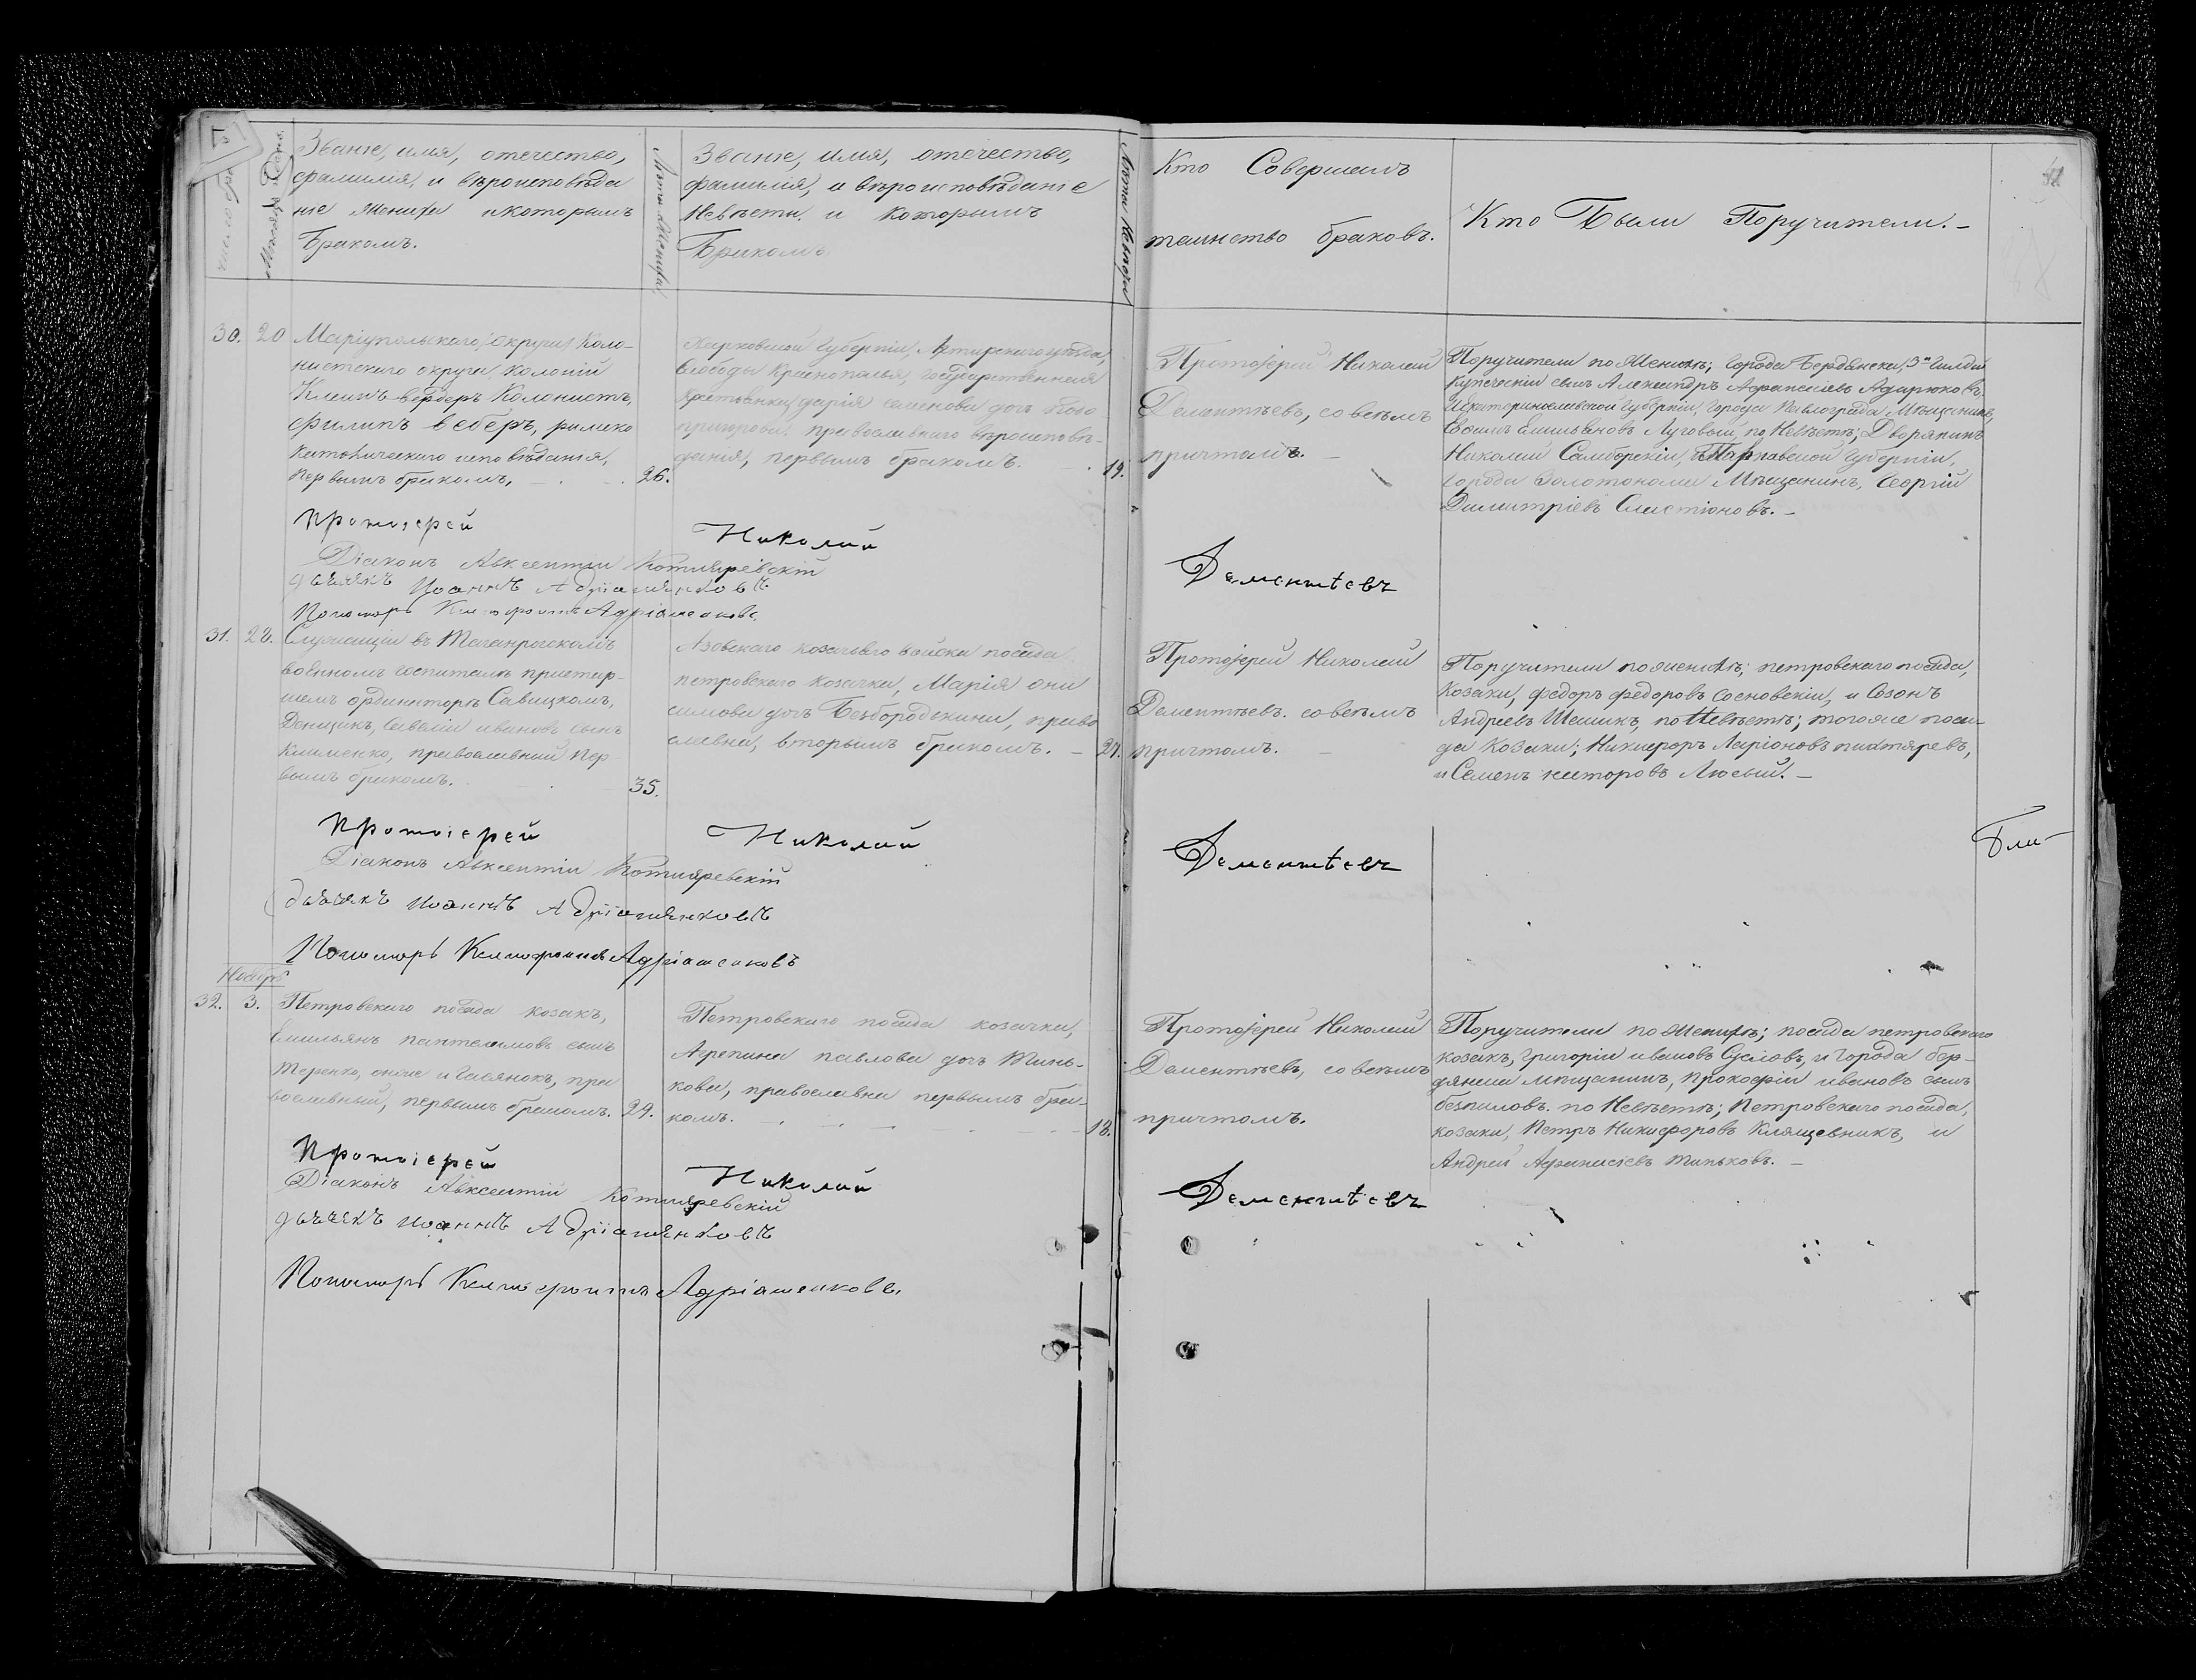 Званіе, имя, отечество,
фамилія, и вѣроисповѣда
ніе Жениха и которымъ
Бракомъ.
Лѣта Жениха
Званіе, имя, отечество,
фамилія, и вѣроисповѣданіе
Невѣсты. и которымъ
Бракомъ.
Лѣта Невѣсты
Кто Совершалъ
таинство браковъ.
Кто Были Поручители. –
30. 20
Маріупольскаго округа Коло-
нистскаго округа, колоній
Клеинъ вердеръ Колонистъ,
Филипъ веберъ, римско
католическаго исповѣданія,
первымъ бракомъ,
26.
Харковской Губерніи, Ахтырскаго уѣзда,
Слободы Краснополья, Государственная
Крестьянка, дарія семенова дочь
православнаго вѣроисповѣ-
данія, первымъ бракомъ.
19.
Протоіерей Николай
Дементѣевъ, со всѣмъ
причтомъ. –
Поручители по Женихѣ; города Бердянска, 3й Гилдіи
купеческій сынъ Александръ Афанасіевъ
Екатеринославской Губерніи, города Павлограда Мѣщанинъ,
Емильяновъ Луговый, по Невѣстѣ; Дворянинъ
Николай Самборскій, Губерніи,
города Золотоноши Мѣщанинъ, Георгій
Димитріевъ Сластіоновъ. –
Протоіерей Николай Дементѣевъ
Діаконъ Авксентіи Котляревскій
дьячекъ Иоаннъ Адріашенковъ
Пономарь Ксенофонтъ Адріашенковъ
31. 28.
Служащіи въ Таганрогскомъ
военномъ госпиталѣ при стар-
шемъ ординаторѣ Савицкомъ,
Денщикъ, Савелій ивановъ сынъ
Клименко, православный пер-
вымъ бракомъ.
35.
Азовскаго козачьяго войска посада
петровскаго козачка, Марія они
симова дочь Безбородькина, право
славна, вторымъ бракомъ. –
27.
Протоіерей Николай
Дементѣевъ. со всѣмъ
причтомъ. –
Поручители по женихѣ; петровскаго посада,
Козаки, федоръ федоровъ сосновскіи, и Созонъ
Андреевъ Шешикъ, по Невѣстѣ; того же поса-
да козаки; Никифоръ Ларіоновъ пихтяревъ,
и Семенъ несторовъ Лысый. –
Протоіерей Николай Дементѣевъ
Діаконъ Авксентіи Котляревскій
дьячекъ Иоаннъ Адріашенковъ
Пономарь Ксенофонтъ Адріашенковъ
Ноябрь
32. 3.
Петровскаго посада козакъ,
Емильянъ пантелимовъ сынъ
Теренко, онже и Гасянокъ, пра
вославный, первымъ бракомъ.
29.
Петровскаго посада козачка,
Агрепина павлова дочь Тинь-
кова, православна первымъ бра-
комъ.
18.
Протоіерей Николай
Дементѣевъ, со всѣмъ
причтомъ.
Поручители по Женихѣ; посада петровскаго
козакъ, григоріи ивановъ Сусловъ, и города бер-
дянска мѣщанинъ, прокофіи ивановъ сынъ
безпиловъ. по Невѣстѣ; Петровскаго посада,
козаки, Петръ Никифоровъ Клящевникъ, и
Андрей Афанасіевъ тиньковъ. –
Протоіерей Николай Дементѣевъ
Діаконъ Авксентій Котляревскій
дьячекъ Иоаннъ Адріашенковъ
Пономарь Ксенофонтъ Адріашенковъ.